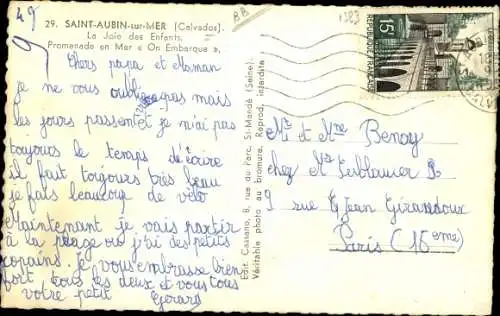 49
9
BB
1383
29. SAINT-AUBIN-sur-MER (Calvados).
La Joie des Enfants.
Promenade en Mer « On Embarque ».
Chers papa et Maman
je ne vous oublie pas mais
les jours passent et je n'ai pas
toujours le temps d'écrire
il fait toujours très beau
je fais beaucoup de vélo
Maintenant je vais partir
à la plage où j'ai des petits
copains. Je vous embrasse bien
fort tous les deux et vous tous
votre petit Gérard
Edit. Cassano, 8, rue du Parc, St-Mandé (Seine).
Véritable photo au bromure. Reprod. interdite
15F
REPUBLIQUE FRANÇAISE
Mr et Mme Benoy
chez
9 rue Jean Giraudoux
Paris (16eme)